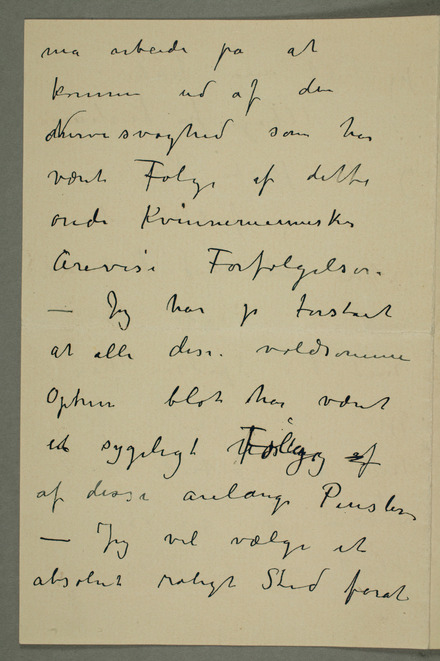 må arbeide på at
komme ud af den
Nervesvaghed som har
vært Følge af dette
onde Kvinnemenneskes
årevise Forfølgelser.
— Jeg har jo forstaat
at alle disse voldsomme
Optrin blot har vært
et sygeligt Følge af
af disse årelange Pinsler
— Jeg vil vælge et
absolut roligt Sted forat